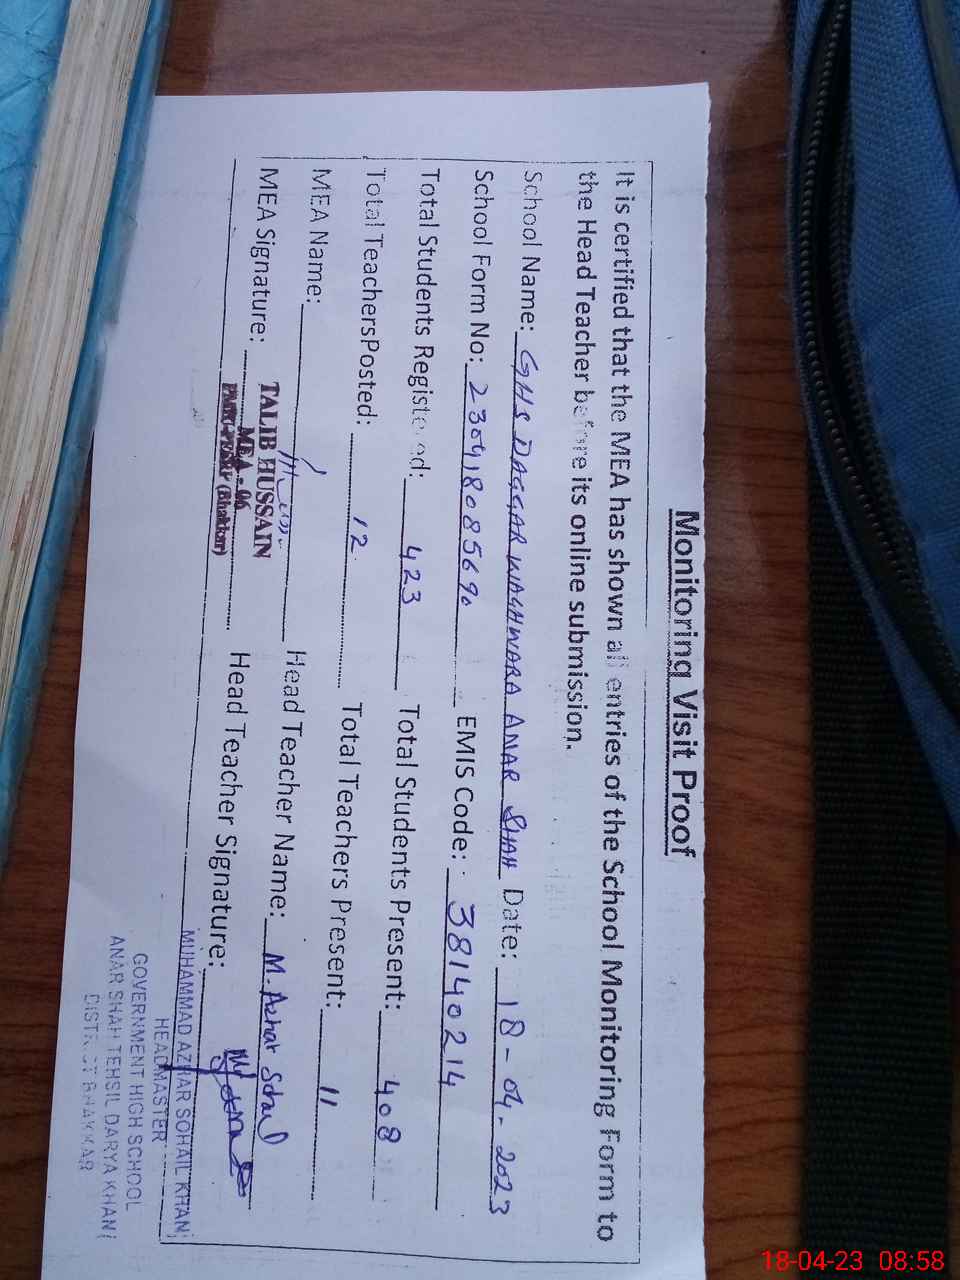 Monitoring Visit Proof
It is certified that the MEA has shown all entries of the School Monitoring Form to
the Head Teacher before its online submission.
School Name: GHS DAGGAR WAGHWARA ANAR SHAH Date: 18-04-2023
School Form No: 230418085690 EMIS Code: 38140214
Total Students Registered: 423 Total Students Present: 408
Total TeachersPosted: 12 Total Teachers Present: 11
MEA Name: Head Teacher Name: M. Azhar Sohail
MEA Signature: Head Teacher Signature:
TALIB HUSSAIN
MEA - 06
(Bhakkar)
MUHAMMAD AZHAR SOHAIL KHAN
HEADMASTER
GOVERNMENT HIGH SCHOOL
ANAR SHAH TEHSIL DARYA KHAN
DISTRICT BHAKKAR
18-04-23 08:58